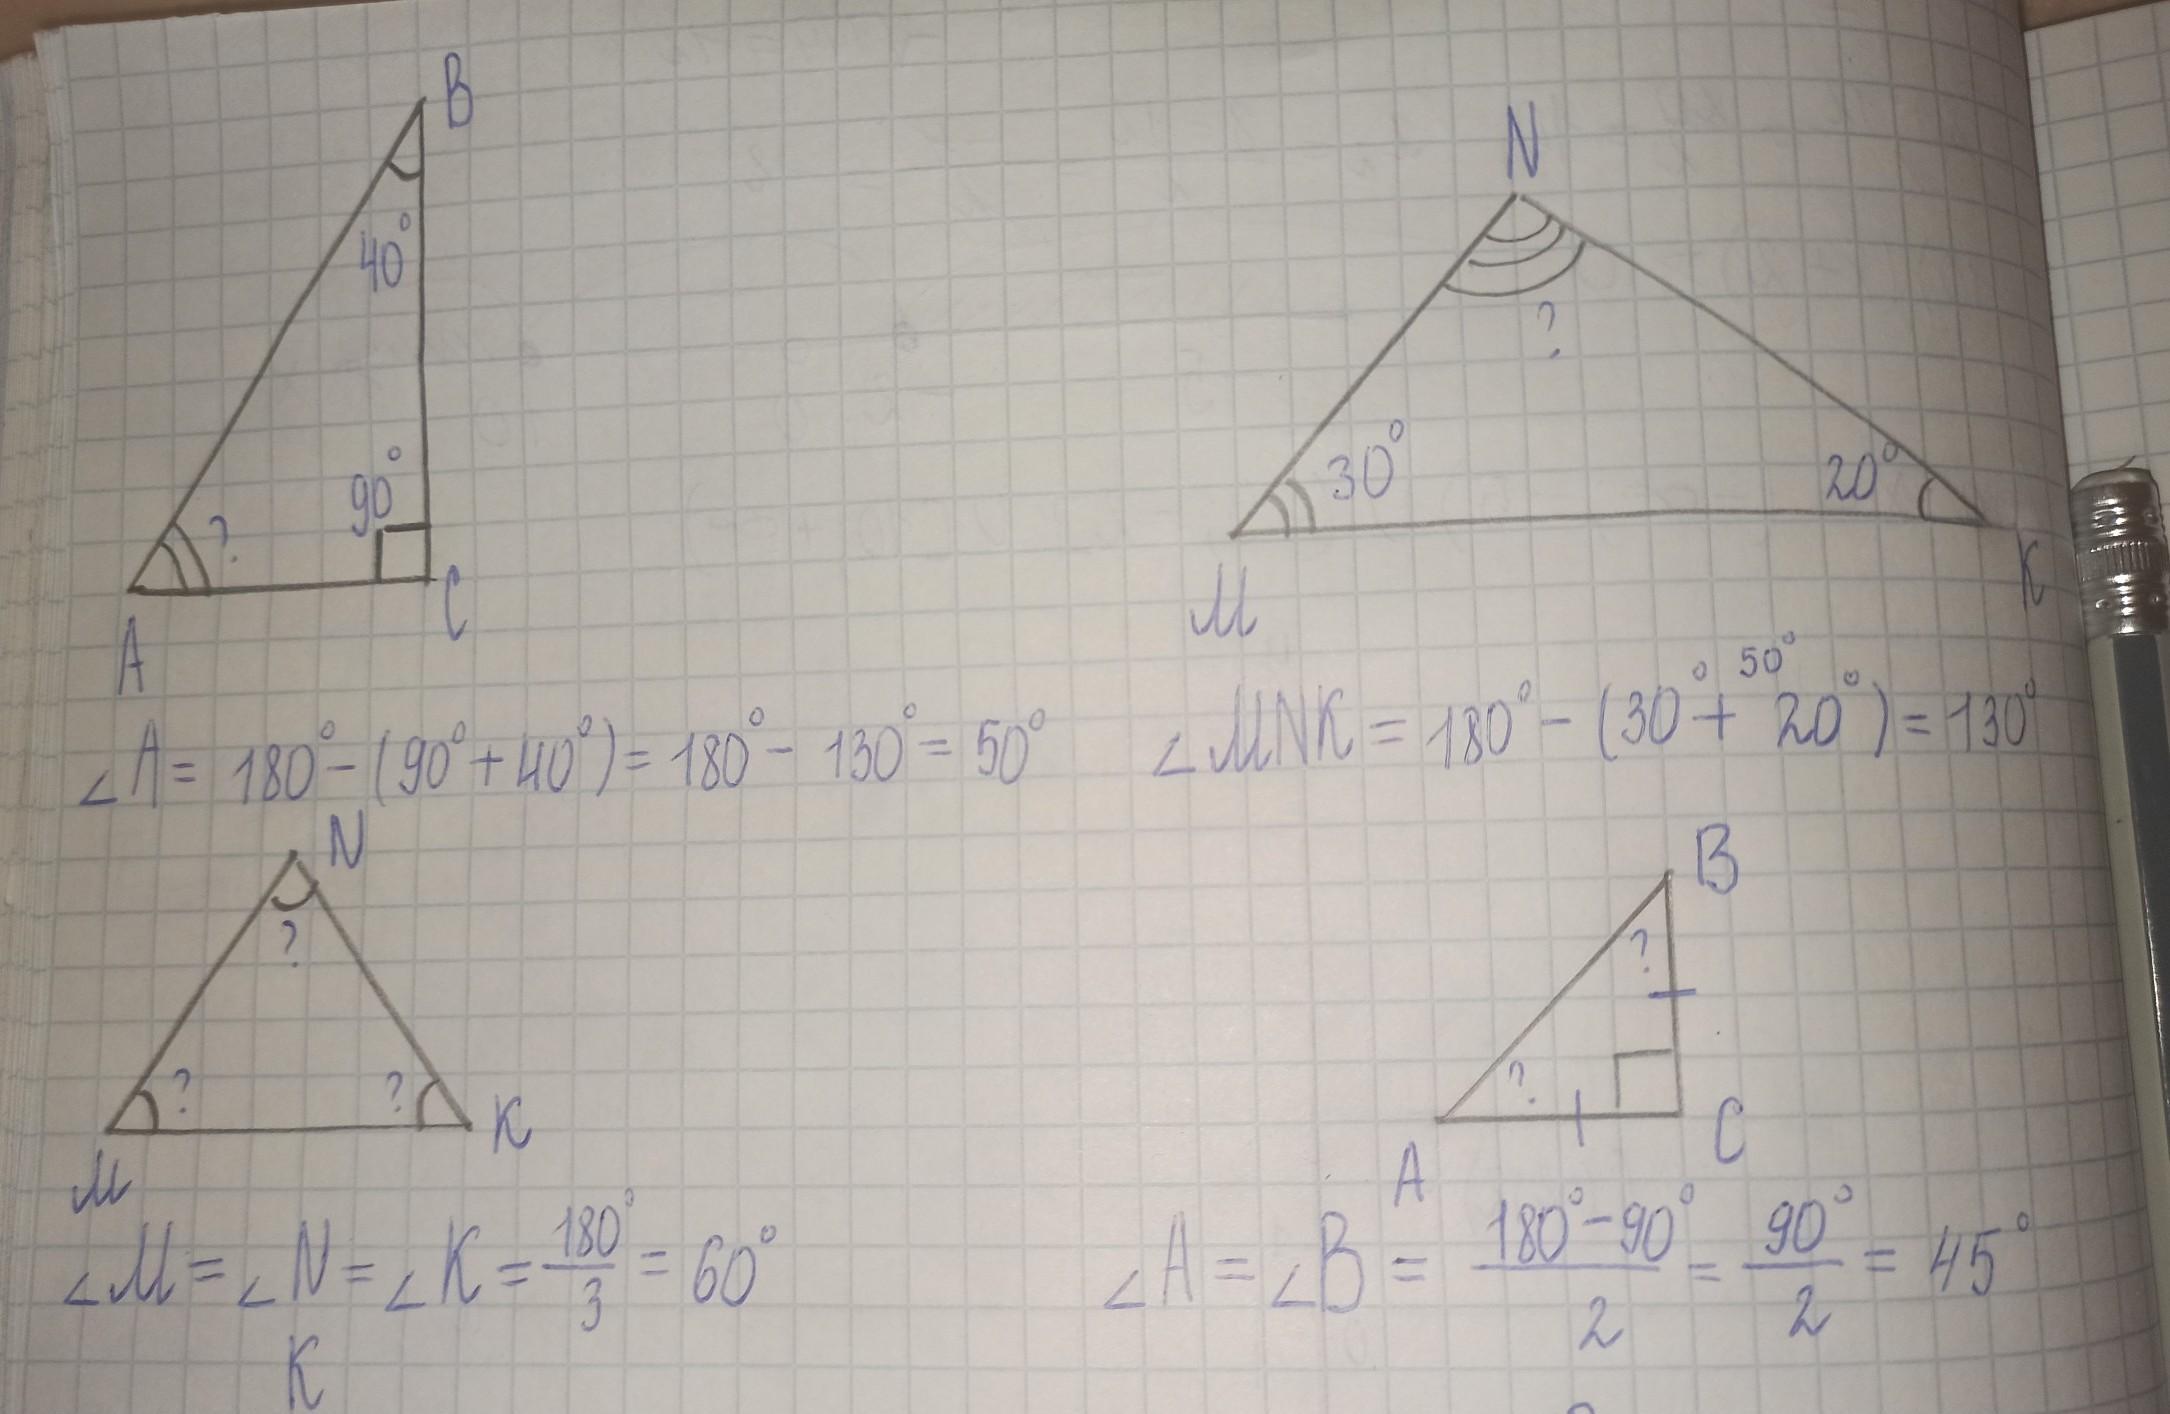 B
N
40°
?
90°
?
30°
20°
A
C
M
K
∠A = 180° - (90° + 40°) = 180° - 130° = 50°
50°
∠MNK = 180° - (30° + 20°) = 130°
N
B
?
?
?
?
K
?
M
A
C
∠M = ∠N = ∠K = 180°/3 = 60°
∠A = ∠B = (180° - 90°)/2 = 90°/2 = 45°
K